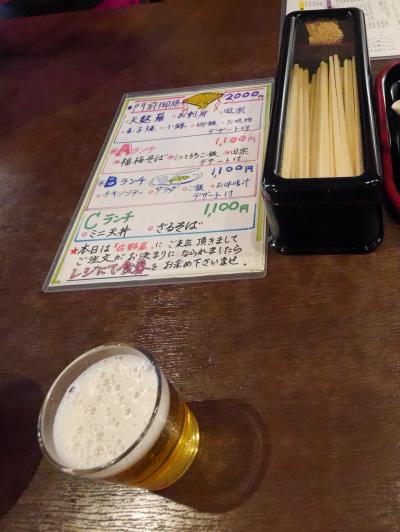 門前御膳 2000円
天麩羅 お刺身 田楽
玉子焼 小鉢 御飯 お吸物
デザート付
Aランチ 1,100円
福梅そば ミニとろろご飯 田楽
デザート付
Bランチ 1,100円
チキンソテー サラダ ご飯 お味噌汁
デザート付
Cランチ 1,100円
ミニ天丼 ざるそば
★本日は「佐野屋」にご来店頂きまして
ご注文がお決まりになられましたら
レジにて食券をお求め下さいませ。